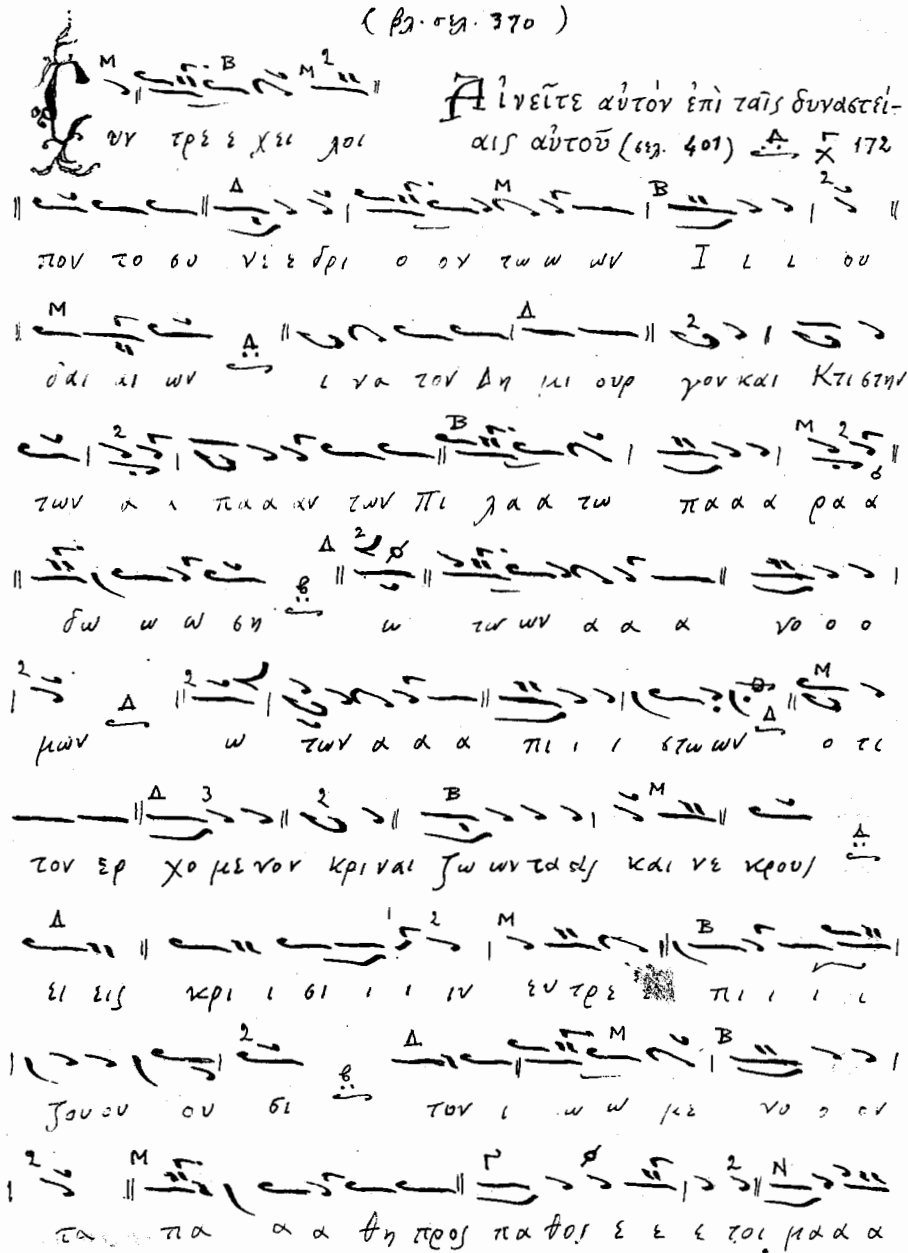 (βλ. σελ. 370)
Αἰνεῖτε αὐτόν ἐπὶ ταῖς δυναστεί-
αις αὐτοῦ (σελ. 401) 172
υν τρε ε χει λοι
πον το συ νε ε δρι ο ον των ω ων Ι ι ι ου
δαι αι ων ι να τον Δη μι ουρ γον και Κτι στην
των α α πα α αν των Πι λα α τω πα α α ρα α
δω ω ω ση ω των ων α α α νο ο ο
μων ω των α α α πι ι ι στω ων ο τι
τον ερ χο με νον κρι ναι ζω ων τα ας και νε κρους
ει εις κρι ι σι ι ι ιν ευ τρε πι ι ι ι
ζου ου ου σι τον ι ω ω με νο ο ον
τα πα α α θη προς πα θος ε ε ε τοι μα α α